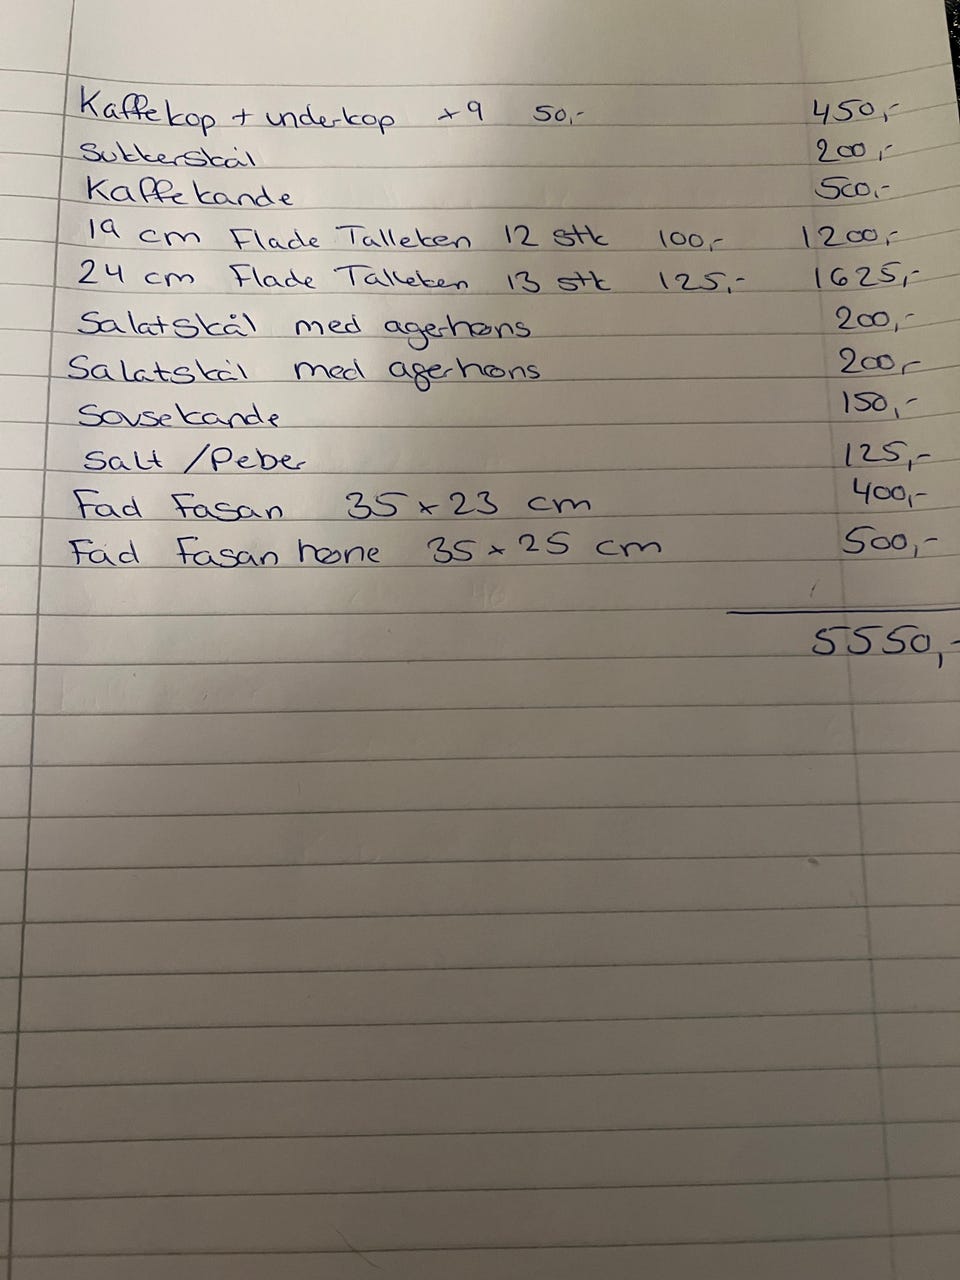 Kaffekop + underkop x 9 50,- 450,-
Sukkerskål 200,-
Kaffekande 500,-
19 cm Flade Talleken 12 stk 100,- 1200,-
24 cm Flade Talleken 13 stk 125,- 1625,-
Salatskål med agerhøns 200,-
Salatskål med agerhøns 200,-
Sovsekande 150,-
Salt / Peber 125,-
Fad Fasan 35 x 23 cm 400,-
Fad Fasan høne 35 x 25 cm 500,-
5550,-